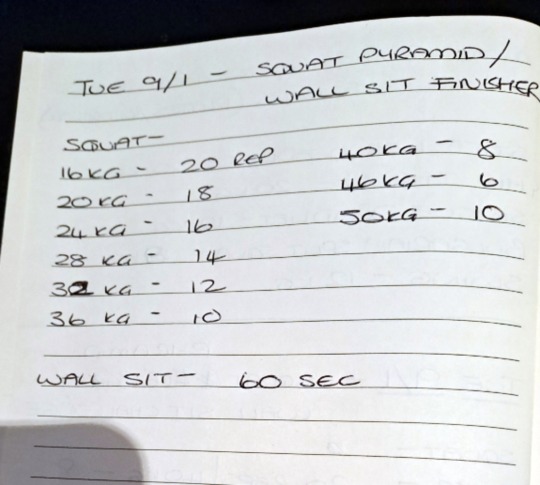 TUE 9/1 - SQUAT PYRAMID /
WALL SIT FINISHER
SQUAT-
16KG - 20 REP
20KG - 18
24KG - 16
28 KG - 14
32 KG - 12
36 KG - 10
40KG - 8
46KG - 6
50KG - 10
WALL SIT- 60 SEC